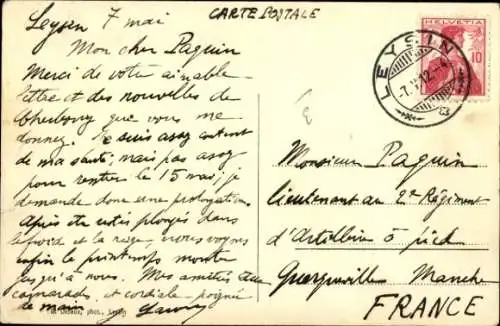 CARTE POSTALE
Leysin 7 mai
Mon cher Paquin
Merci de votre aimable
lettre et des nouvelles de
Cherbourg que vous me
donnez. Je suis assez content
de ma santé; mais pas assez
pour rentrer le 15 mai; je
demande donc une prolongation.
Après être restés plongés dans
le froid et la neige, nous voyons
enfin le printemps monter
jusqu'à nous. Mes amitiés aux
camarades, et cordiale poignée
de main
phot., Leysin
HELVETIA
10
LEYSIN
-7.V.12.-4
Monsieur Paquin
Lieutenant au 2e Régiment
d'Artillerie à pied
Querqueville Manche
FRANCE